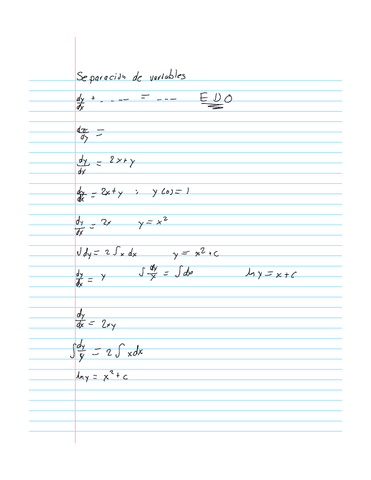 Separación de variables
dy/dx + . . --- = --- EDO
dx/dy =
dy/dx = 2x+y
dy/dx = 2x+y ; y(0)=1
dy/dx = 2x y = x²
∫dy = 2∫x dx y = x²+c
dy/dx = y ∫dy/y = ∫dx ln y = x+c
dy/dx = 2xy
∫dy/y = 2∫xdx
ln y = x²+c